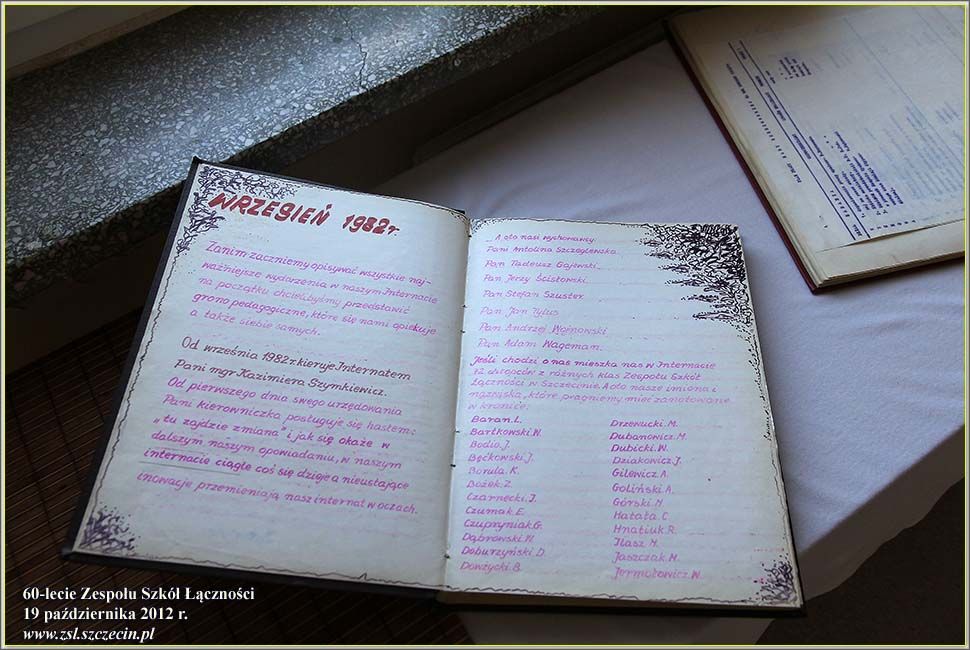 WRZESIEŃ 1982r.
Zanim zaczniemy opisywać wszystkie naj-
ważniejsze wydarzenia w naszym Internacie
na początku chcielibyśmy przedstawić
grono pedagogiczne, które się nami opiekuje
a także siebie samych.
Od września 1982r. kieruje Internatem
Pani mgr Kazimiera Szymkiewicz.
Od pierwszego dnia swego urzędowania
Pani kierowniczka posługuje się hasłem:
"tu zajdzie zmiana" i jak się okaże w
dalszym naszym opowiadaniu, w naszym
internacie ciągle coś się dzieje a nieustające
inowacje przemieniają nasz internat w oczach.
A oto nasi wychowawcy:
Pani Antolina Szczeglewska
Pan Tadeusz Gajewski
Pan Jerzy Ścisłowski
Pan Stefan Szuster
Pan Jan Tylus
Pan Andrzej Wojnowski
Pan Adam Wageman.
Jeśli chodzi o nas mieszka nas w Internacie
chłopców z różnych klas Zespołu Szkół
Łączności w Szczecinie. A oto nasze imiona i
nazwiska, które pragniemy mieć zanotowane
w kronice:
Baran. L.
Bartkowski. W.
Bodio. J.
Bęćkowski. J.
Borula. K.
Bożek. Z.
Czarnecki. J.
Czumak. E.
Czupryniak. G.
Dąbrowski. W.
Doburzyński. D.
Dowżycki. B.
Drzewucki. M.
Dubanowicz. M.
Dubicki. W.
Dziakowicz. J.
Gilewicz. A.
Goliński. A.
Górski. M
Hatała. C
Hnatiuk. R.
Ilasz. M.
Jaszczak. M.
Jermołowicz. W.
60-lecie Zespołu Szkół Łączności
19 października 2012 r.
www.zsl.szczecin.pl